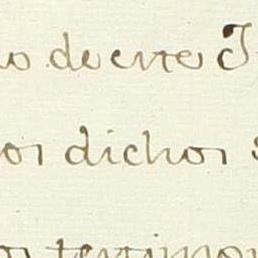 o de este
os dichos s
os testimon